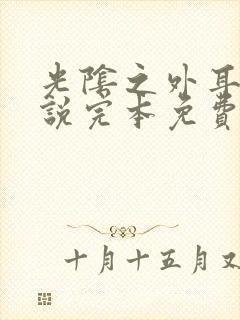 光陰之外耳
說完本免費
十月十五月又